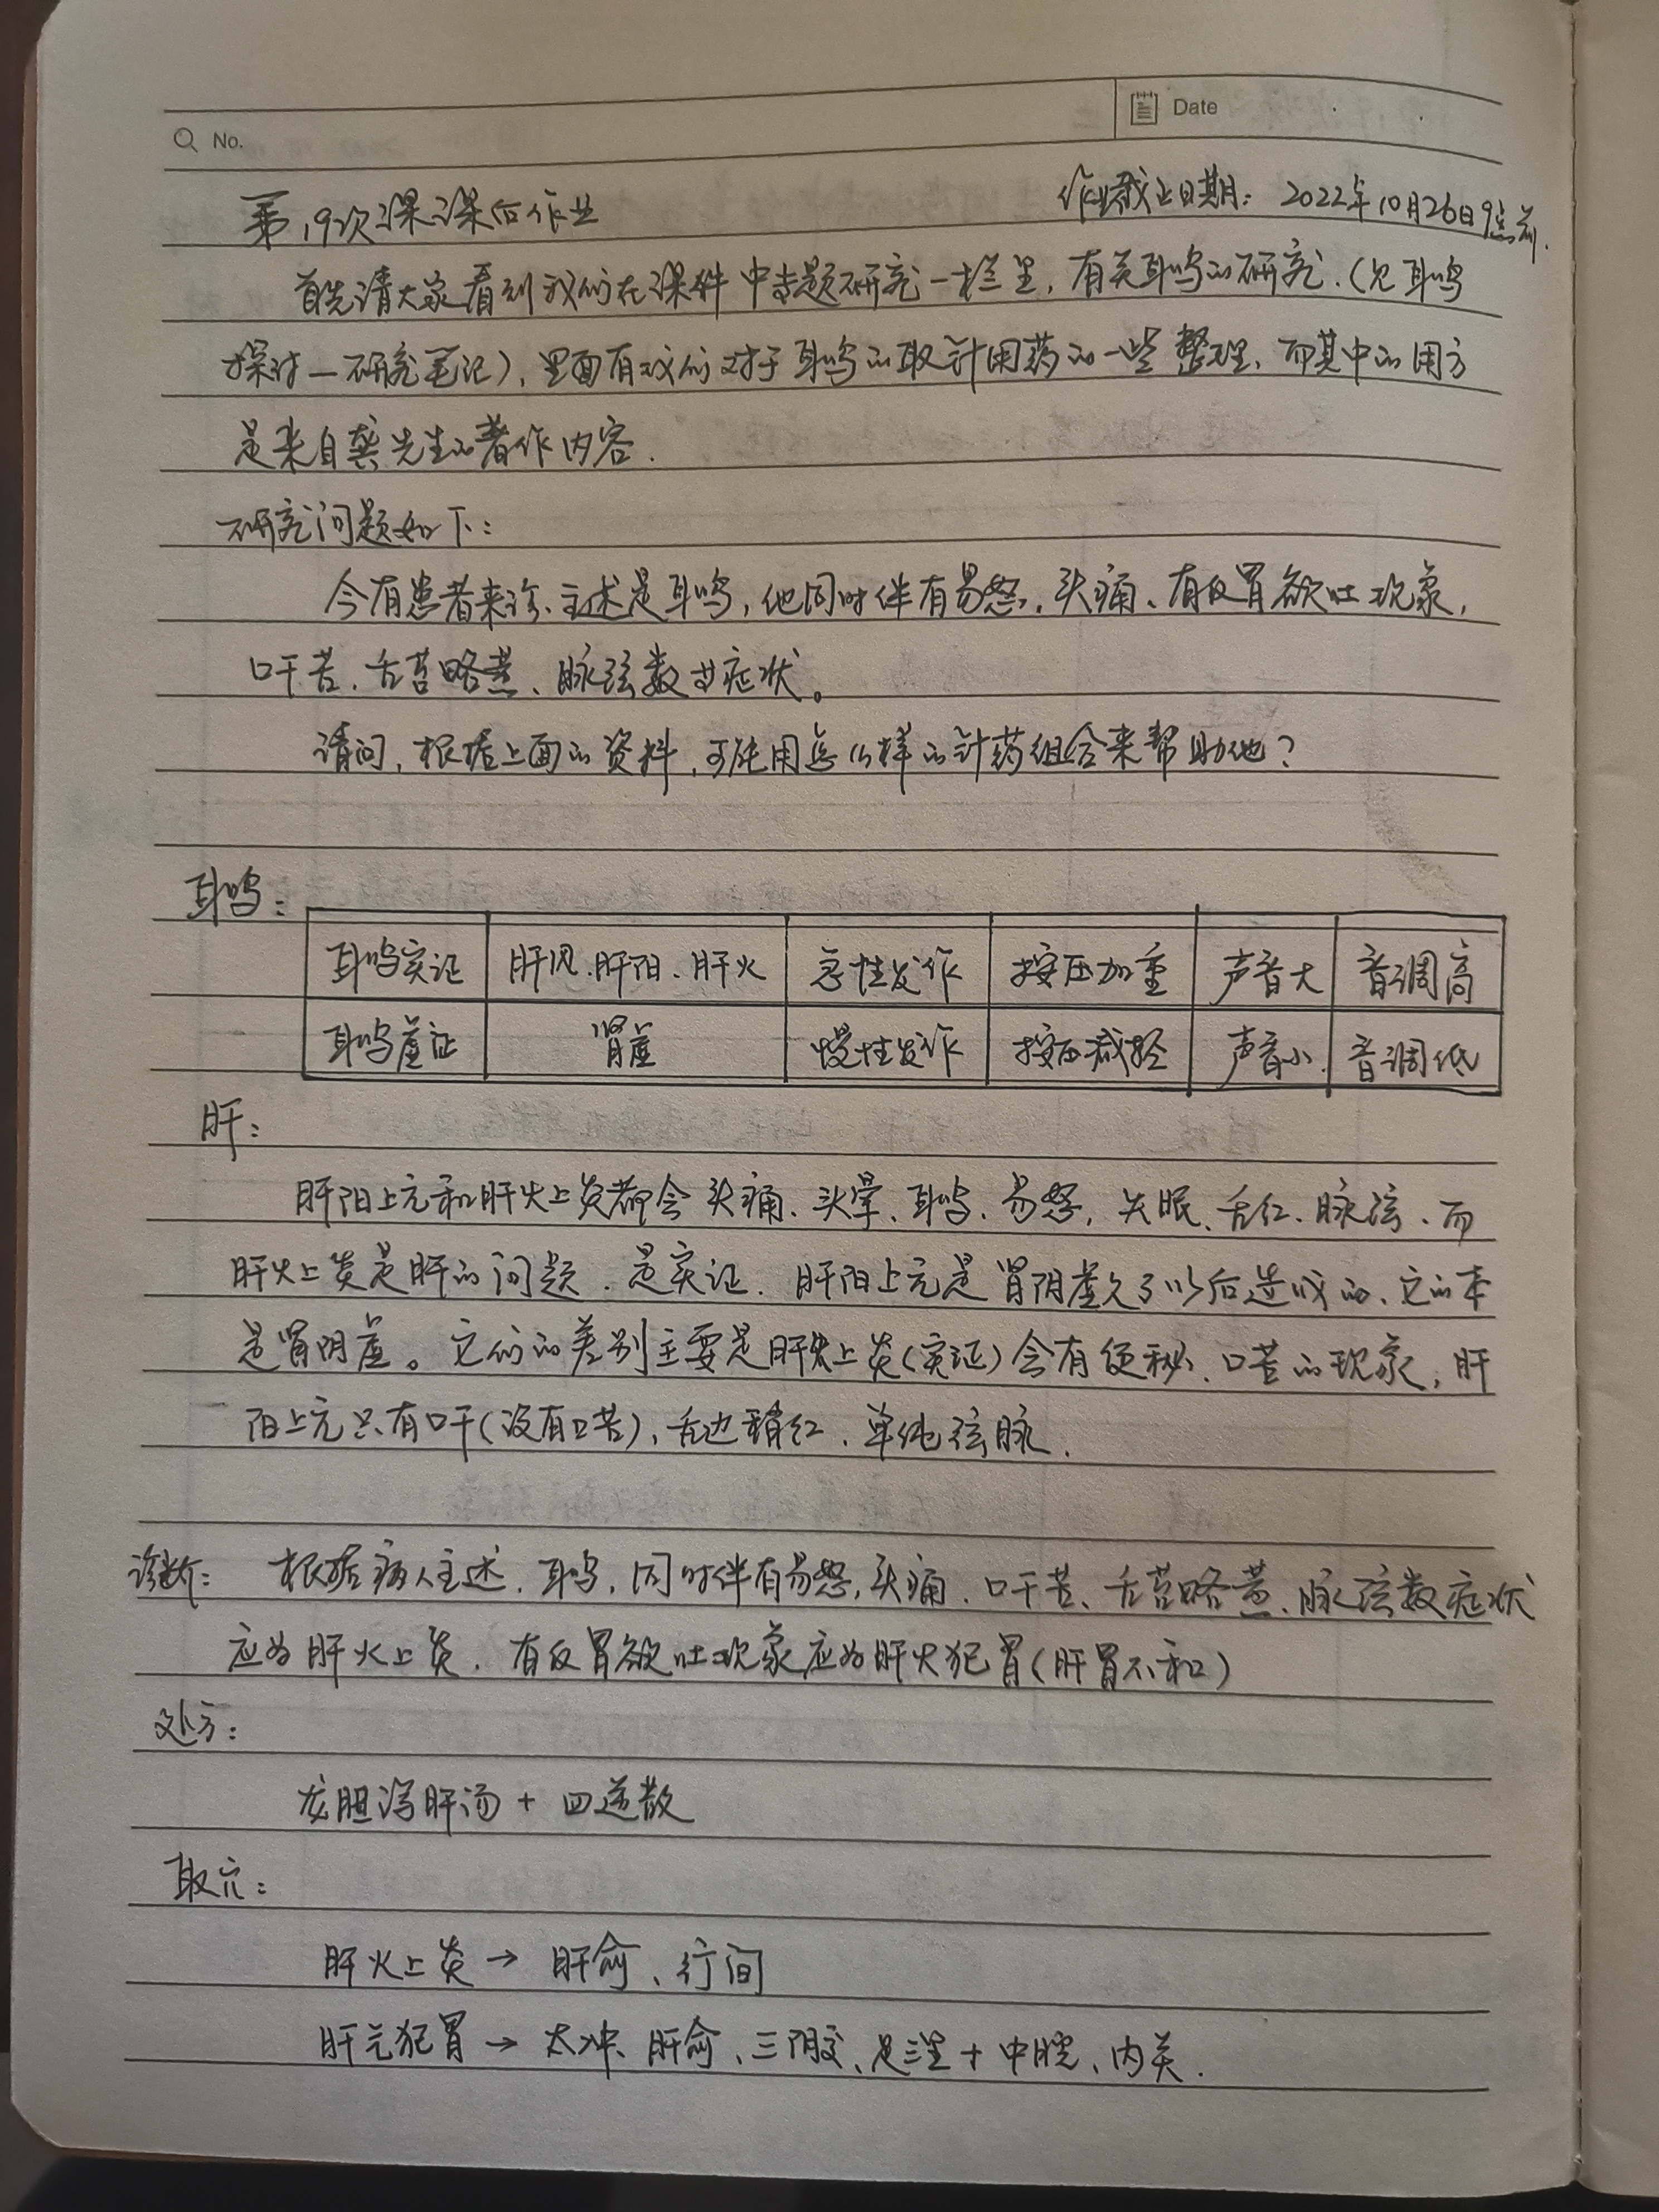 No.
Date
第19次课课后作业
作业截止日期：2022年10月26日9点前.
首先请大家看到我们在课件中专题研究一栏里，有关耳鸣的研究.（见耳鸣
探讨—研究笔记），里面有我们对于耳鸣的取针用药的一些整理，而其中的用方
是来自龚先生的著作内容.
研究问题如下：
今有患者来诊、主述是耳鸣，他同时伴有易怒、头痛、有反胃欲吐现象，
口干苦、舌苔略黄、脉弦数等症状。
请问，根据上面的资料，可能用怎么样的针药组合来帮助他？
耳鸣：
耳鸣实证 肝风.肝阳.肝火 急性发作 按压加重 声音大 音调高
耳鸣虚证 肾虚 慢性发作 按压减轻 声音小 音调低
肝：
肝阳上亢和肝火上炎都会头痛、头晕、耳鸣、易怒，失眠、舌红、脉弦、而
肝火上炎是肝的问题.是实证.肝阳上亢是肾阴虚久了以后造成的、它的本
是肾阴虚。它们的差别主要是肝火上炎（实证）会有便秘、口苦的现象，肝
阳上亢只有口干（没有口苦）、舌边稍红、单纯弦脉.
诊断：根据病人主述.耳鸣，同时伴有易怒，头痛、口干苦、舌苔略黄、脉弦数症状
应为肝火上炎.有反胃欲吐现象应为肝火犯胃（肝胃不和）
处方：
龙胆泻肝汤 + 四逆散
取穴：
肝火上炎 → 肝俞、行间
肝气犯胃 → 太冲、肝俞、三阴交、足三里 + 中脘、内关.